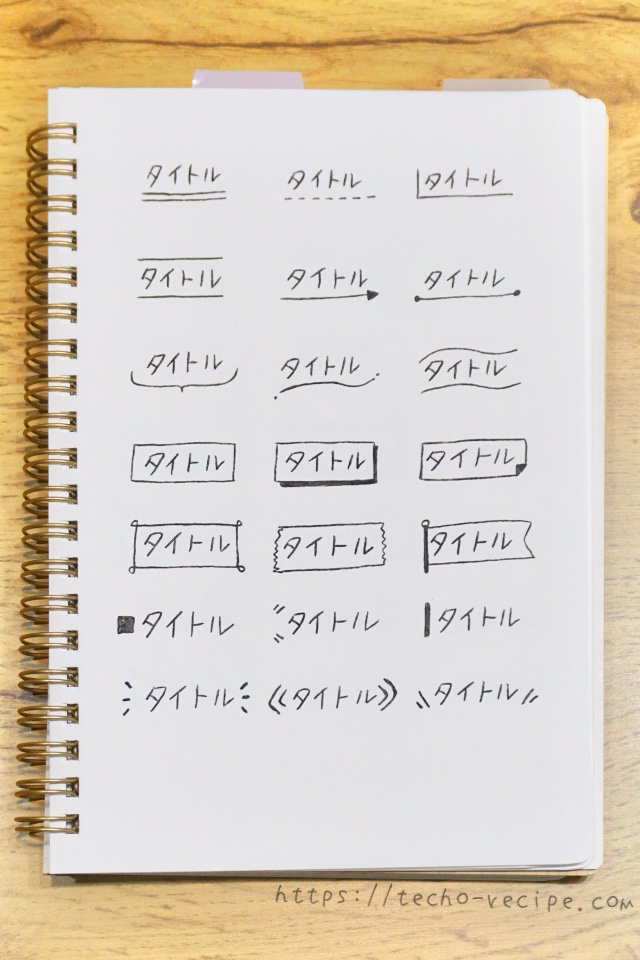 タイトル タイトル タイトル
タイトル タイトル タイトル
タイトル タイトル タイトル
タイトル タイトル タイトル
タイトル タイトル タイトル
タイトル タイトル タイトル
タイトル 《タイトル》 タイトル
https://techo-recipe.com